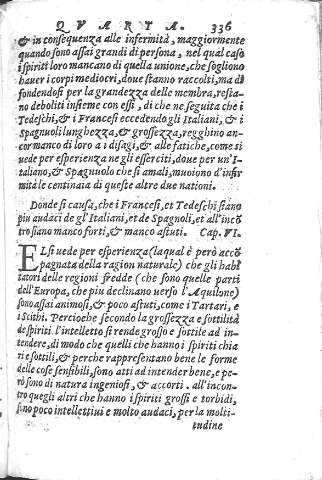 QVARTA. 336
& in consequenza alle infermità, maggiormente
quando sono assai grandi di persona, nel qual caso
i spiriti loro mancano di quella unione, che sogliono
hauer i corpi mediocri, doue stanno raccolti, ma di
fondendosi per la grandezza delle membra, resta-
no deboliti insieme con essi, di che ne seguita che i
Tedeschi, & i Francesi eccedendo gl'Italiani, & i
Spagnuoli lunghezza, & grossezza, regghino an-
cor manco di loro a i disagi, & alle fatiche, come si
uede per esperienza ne gli esserciti, doue per un'I-
taliano, & Spagnuolo che si amali, muoiono d'infir
mità le centinaia di queste altre due nationi.
Donde si causa, che i Francesi, et Tedeschi siano
piu audaci de gl'Italiani, et de Spagnoli, et all'incō
tro siano manco forti, & manco astuti. Cap. VI.
EL si uede per esperienza (laqual è però accō
pagnata della ragion naturale) che gli habi
tatori delle regioni fredde (che sono quelle parti
dell'Europa, che piu declinano uerso l'Aquilone)
sono assai animosi, & poco astuti, come i Tartari, e
i Scithi. Percioche secondo la grossezza e sottilità
de spiriti, l'intelletto si rende grosso e sottile ad in-
tendere, di modo che quelli che hanno i spiriti chia
ri e sottili, & perche rappresentano bene le forme
delle cose sensibili, sono atti ad intender bene, e pe-
rò sono di natura ingeniosi, & accorti. all'incon-
tro quegli altri che hanno i spiriti grossi e torbidi,
sono poco intellettiui e molto audaci, per la molti-
tudine